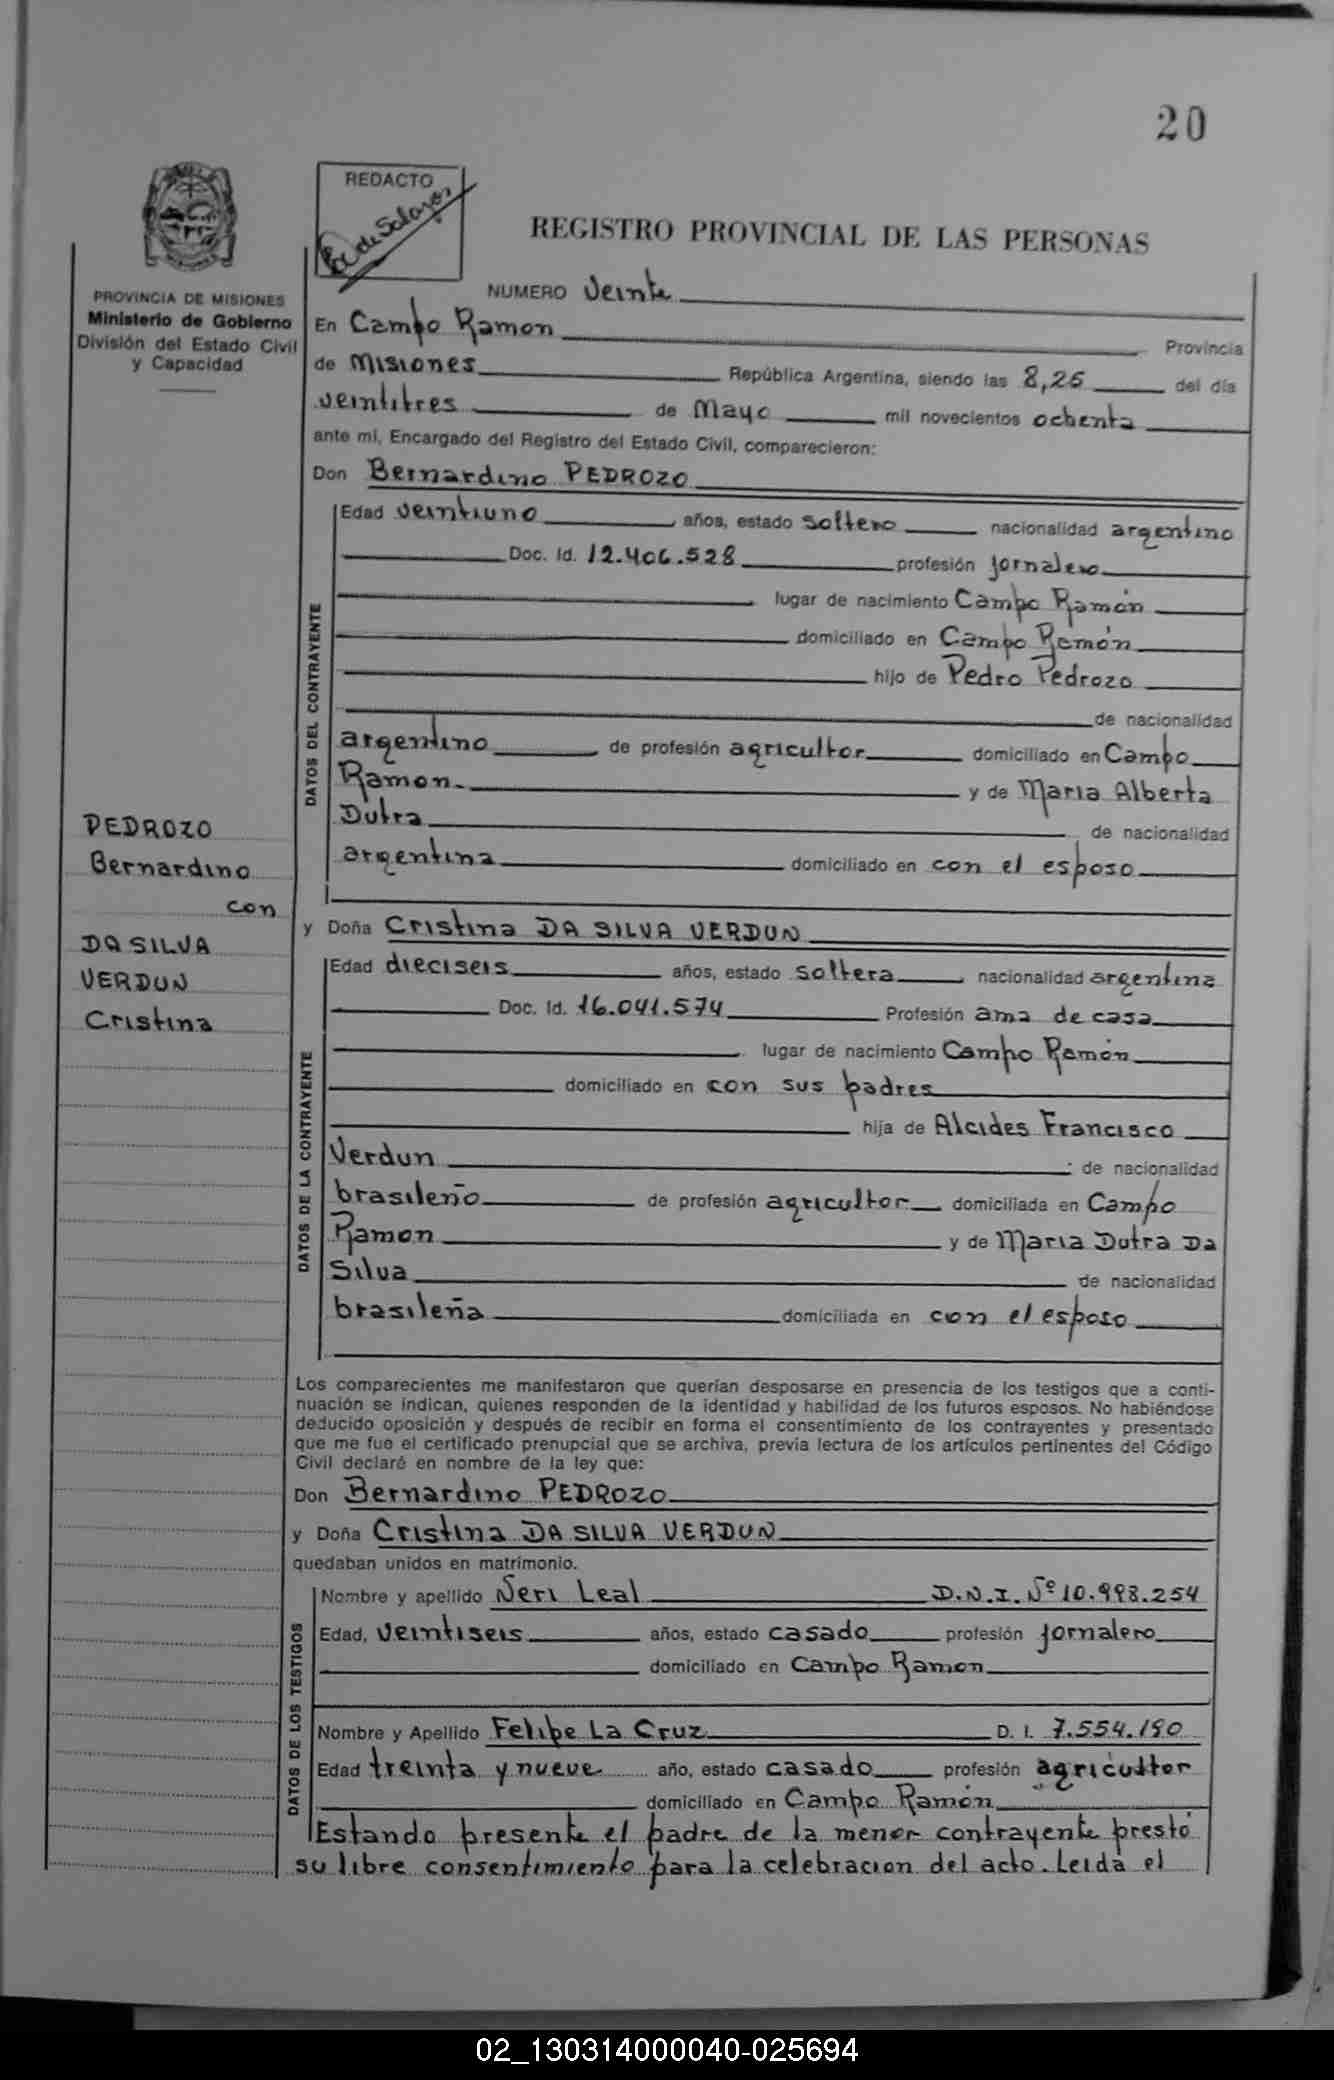 20
REDACTO
de Salazar
REGISTRO PROVINCIAL DE LAS PERSONAS
PROVINCIA DE MISIONES
Ministerio de Gobierno
División del Estado Civil
y Capacidad
NUMERO Veinte
En Campo Ramon Provincia
de Misiones República Argentina, siendo las 8,25 del día
veintitres de Mayo mil novecientos ochenta
ante mí, Encargado del Registro del Estado Civil, comparecieron:
Don Bernardino PEDROZO
DATOS DEL CONTRAYENTE
Edad veintiuno años, estado soltero nacionalidad argentino
Doc. Id. 12.406.528 profesión jornalero
lugar de nacimiento Campo Ramón
domiciliado en Campo Ramón
hijo de Pedro Pedrozo
de nacionalidad
argentino de profesión agricultor domiciliado en Campo
Ramon- y de Maria Alberta
Dutra de nacionalidad
argentina domiciliado en con el esposo
PEDROZO
Bernardino
con
DA SILVA
VERDUN
Cristina
y Doña Cristina DA SILVA VERDUN
DATOS DE LA CONTRAYENTE
Edad dieciseis años, estado soltera nacionalidad argentina
Doc. Id. 16.041.574 Profesión ama de casa
lugar de nacimiento Campo Ramón
domiciliado en con sus padres
hija de Alcides Francisco
Verdun de nacionalidad
brasileño de profesión agricultor domiciliada en Campo
Ramon y de Maria Dutra Da
Silva de nacionalidad
brasileña domiciliada en con el esposo
Los comparecientes me manifestaron que querían desposarse en presencia de los testigos que a conti-
nuación se indican, quienes responden de la identidad y habilidad de los futuros esposos. No habiéndose
deducido oposición y después de recibir en forma el consentimiento de los contrayentes y presentado
que me fue el certificado prenupcial que se archiva, previa lectura de los artículos pertinentes del Código
Civil declaré en nombre de la ley que:
Don Bernardino PEDROZO
y Doña Cristina DA SILVA VERDUN
quedaban unidos en matrimonio.
DATOS DE LOS TESTIGOS
Nombre y apellido Neri Leal D.N.I. Nº 10.998.254
Edad, veintiseis años, estado casado profesión jornalero
domiciliado en Campo Ramon
Nombre y Apellido Felipe La Cruz D. I. 7.554.190
Edad treinta y nueve año, estado casado profesión agricultor
domiciliado en Campo Ramón
Estando presente el padre de la menor contrayente prestó
su libre consentimiento para la celebracion del acto. Leida el
02_130314000040-025694